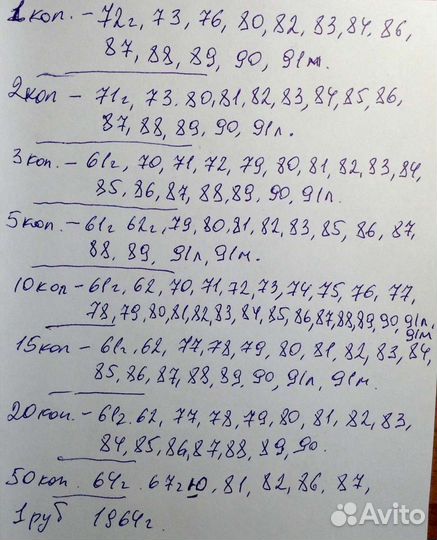 1 коп. - 72г, 73, 76, 80, 82, 83, 84, 86,
87, 88, 89, 90, 91м.
2 коп - 71г, 73. 80, 81, 82, 83, 84, 85, 86,
87, 88, 89, 90, 91л.
3 коп. - 61г, 70, 71, 72, 79, 80, 81, 82, 83, 84,
85, 86, 87, 88, 89, 90, 91л.
5 коп. - 61г 62г, 79, 80, 81, 82, 83, 85, 86, 87,
88, 89, 91л, 91м.
10 коп - 61г, 62, 70, 71, 72, 73, 74, 75, 76, 77,
78, 79, 80, 81, 82, 83, 84, 85, 86, 87, 88, 89, 90, 91л,
91м
15 коп - 61г, 62, 77, 78, 79, 80, 81, 82, 83, 84,
85, 86, 87, 88, 89, 90, 91л, 91м.
20 коп. - 61г. 62, 77, 78, 79, 80, 81, 82, 83,
84, 85, 86, 87, 88, 89, 90.
50 коп. 64г. 67г Ю, 81, 82, 86, 87,
1 руб 1964г.
Avito